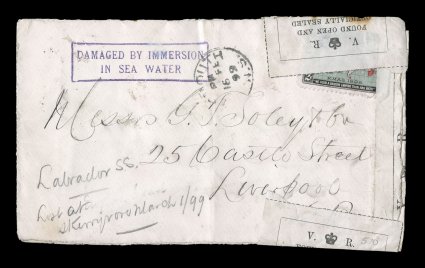 V. R.
FOUND OPEN AND
OFFICIALLY SEALED
DAMAGED BY IMMERSION
IN SEA WATER
XMAS 1898
Messrs G. F. Soley & Co
25 Castle Street
Liverpool
Labrador SS.
Lost at
Skerryvore March 1/99
V. R.